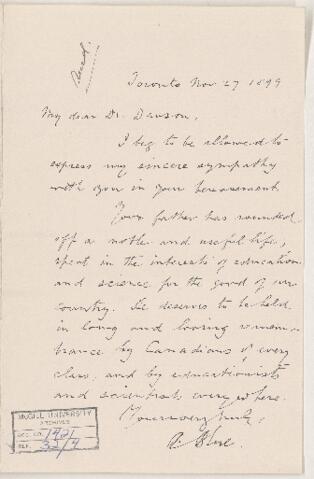 Ansd.
Toronto Nov 27 1899
My dear Dr. Dawson,
I beg to be allowed to
express my sincere sympathy
with you in your bereavement
Your father has rounded
off a noble and useful life,
spent in the interests of education
and science for the good of our
country. He deserves to be held
in long and loving remem-
brance by Canadians of every
class, and by educationists
and scientists everywhere.
Yours very truly,
A. Blue.
McGILL UNIVERSITY
ARCHIVES
ACC. NO. 1421
REF.